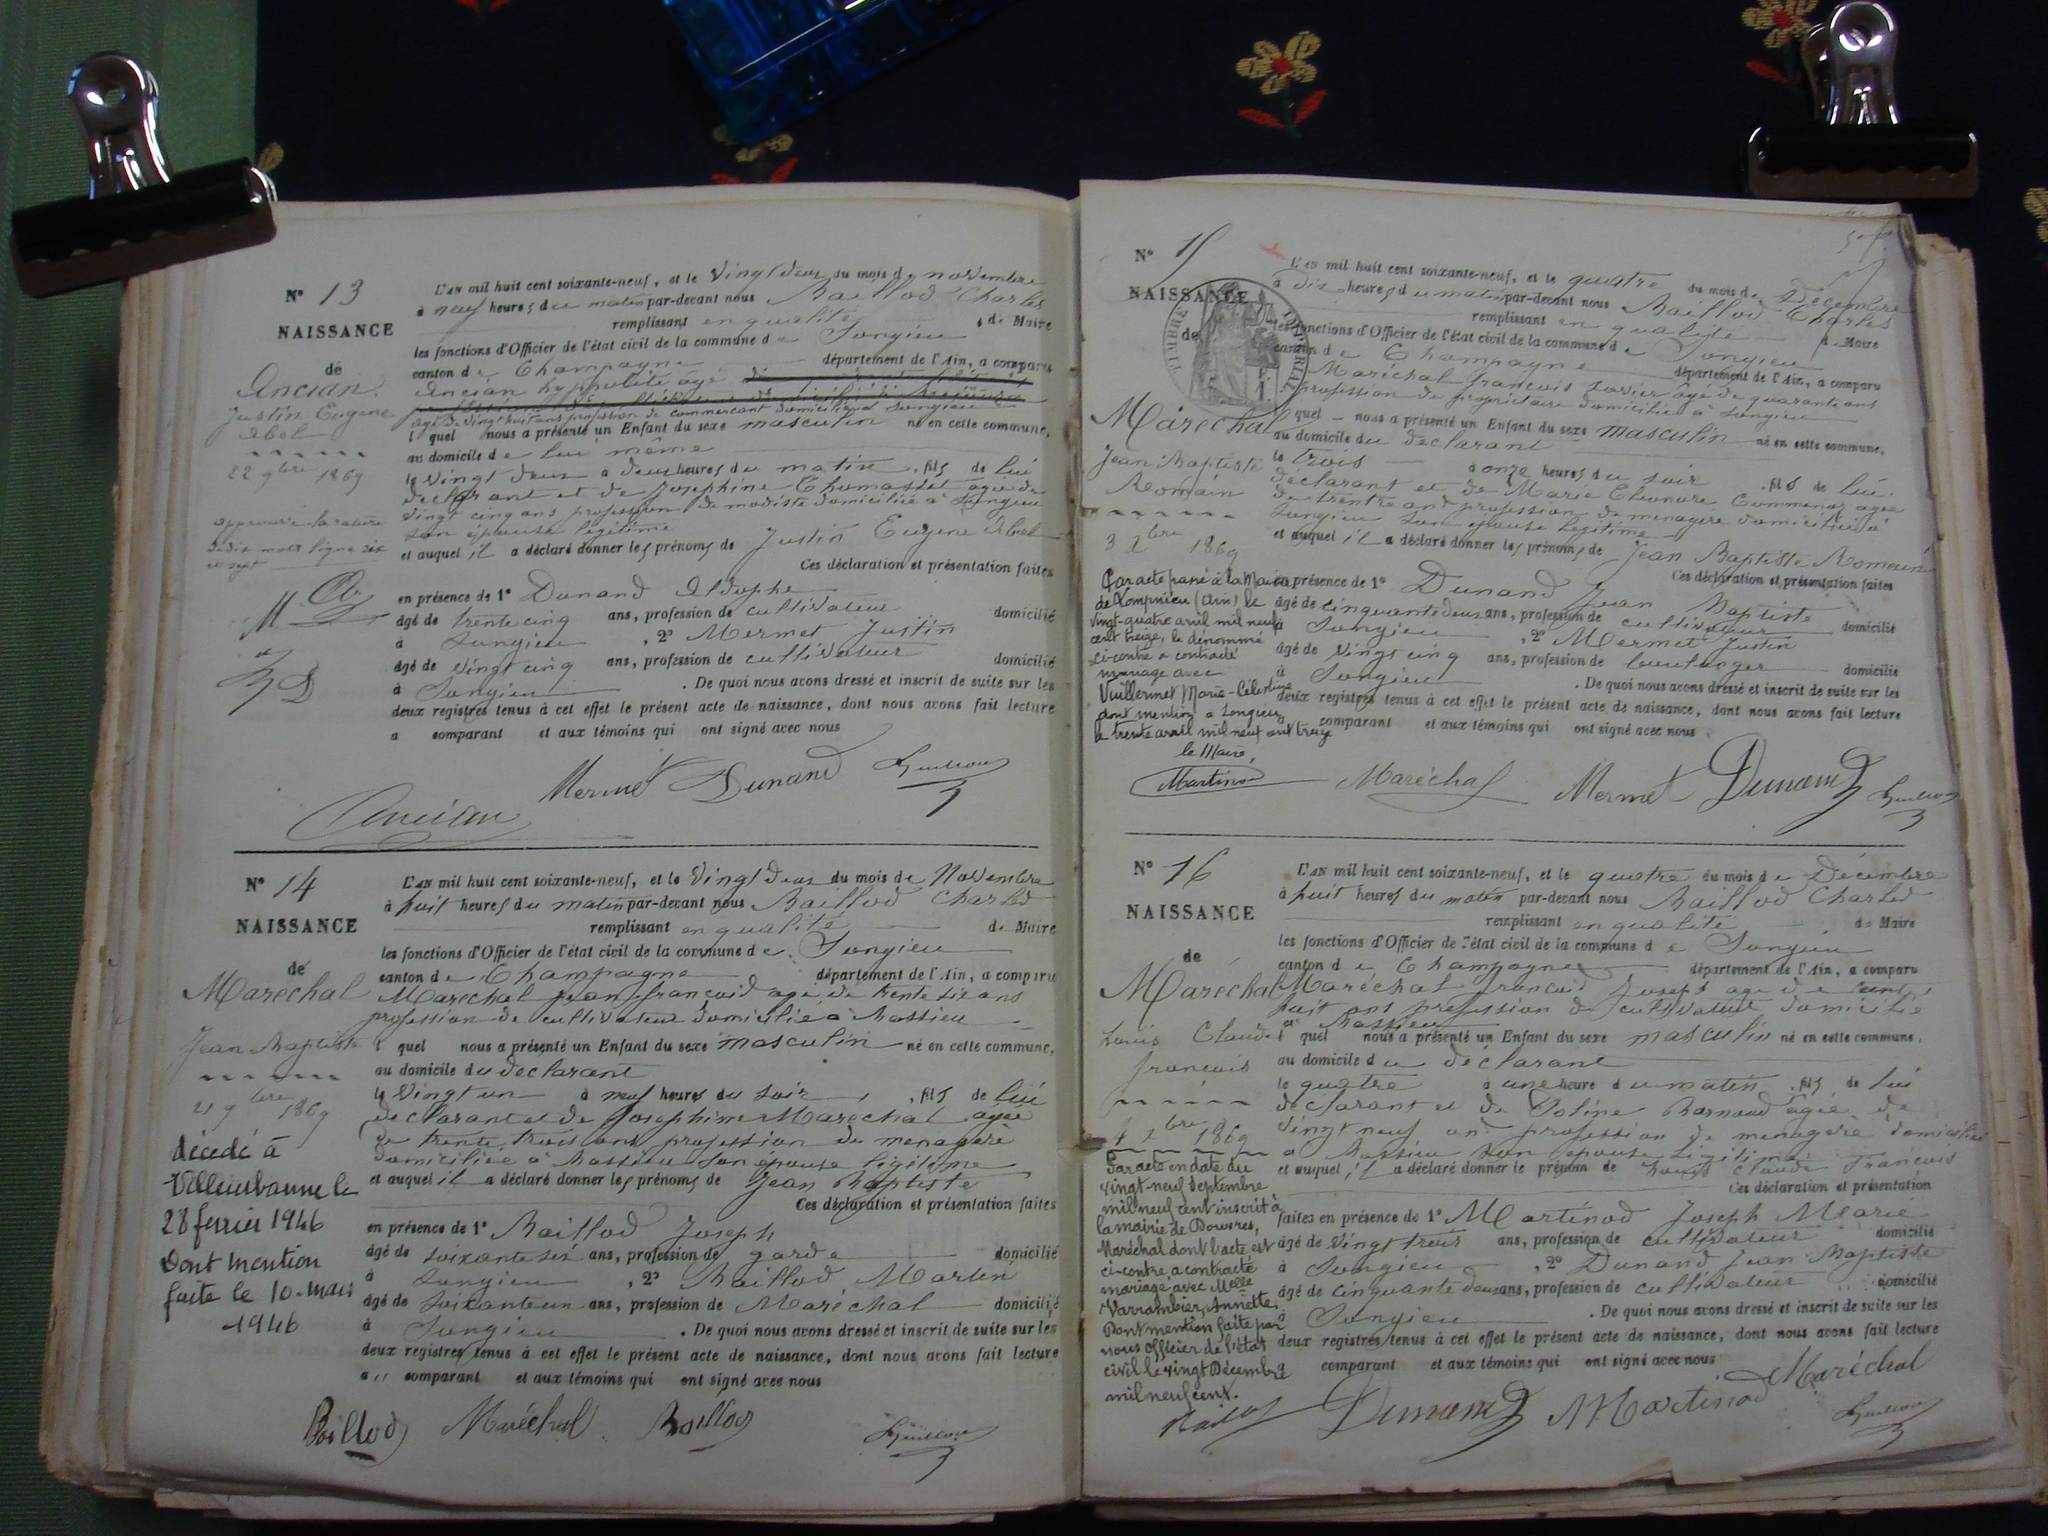 N° 13
NAISSANCE
de
Ancian
Justin Eugene
Abel
22 9bre 1869
approuvé la rature
de dix mots ligne six
et sept
L'AN mil huit cent soixante-neuf, et le Vingt deux du mois de novembre
à neuf heures du matin par-devant nous Baillod Charles
remplissant en qualité de Maire
les fonctions d'Officier de l'état civil de la commune de Songieu
canton de Champagne département de l'Ain, a comparu
Ancian hyppolite âgé
âgé de vingt huit ans profession de commercant domicilié à Songieu
lequel nous a présenté un Enfant du sexe masculin né en cette commune,
au domicile de lui même
le Vingt deux à deux heures du matin, fils de lui
déclarant et de Josephine Thomasset agée de
vingt cinq ans profession de modiste domiciliée à Songieu
son épouse légitime
et auquel il a déclaré donner les prénoms de Justin Eugene Abel
Ces déclaration et présentation faites
en présence de 1° Dunand Adolphe
âgé de trente cinq ans, profession de cultivateur domicilié
à Songieu, 2° Mermet Justin
âgé de vingt cinq ans, profession de cultivateur domicilié
à Songieu. De quoi nous avons dressé et inscrit de suite sur les
deux registres tenus à cet effet le présent acte de naissance, dont nous avons fait lecture
a comparant et aux témoins qui ont signé avec nous
Mermet Dunand
Ancian
N° 14
NAISSANCE
de
Maréchal
Jean Baptiste
21 9bre 1869
décédé à
Villeurbanne le
28 février 1946
Dont mention
faite le 10 mars
1946
L'AN mil huit cent soixante-neuf, et le Vingt deux du mois de Novembre
à huit heures du matin par-devant nous Baillod Charles
remplissant en qualité de Maire
les fonctions d'Officier de l'état civil de la commune de Songieu
canton de Champagne département de l'Ain, a comparu
Maréchal jean francois agé de trente six ans
profession de cultivateur domicilié à Bassieu
lequel nous a présenté un Enfant du sexe masculin né en cette commune,
au domicile du déclarant
le Vingt un à neuf heures du soir, fils de lui
declarant et de Josephine Maréchal agée
de trente trois ans profession de menagère
domiciliée à Bassieu son épouse légitime
et auquel il a déclaré donner les prénoms de Jean Baptiste
Ces déclaration et présentation faites
en présence de 1° Baillod Joseph
âgé de soixante six ans, profession de garde domicilié
à Songieu, 2° Baillod Martin
âgé de soixante un ans, profession de Maréchal domicilié
à Songieu. De quoi nous avons dressé et inscrit de suite sur les
deux registres tenus à cet effet le présent acte de naissance, dont nous avons fait lecture
au comparant et aux témoins qui ont signé avec nous
Baillod Maréchal Baillod
N° 15
NAISSANCE
de
TIMBRE IMPERIAL
Maréchal
Jean Baptiste
Romain
3 Xbre 1869
Par acte passé à la Mairie
de Lompnieu (Ain) le
vingt-quatre avril mil neuf
cent treize, le dénommé
ci-contre a contracté
mariage avec
Vuillermet Marie-Célestine
dont mention a Songieu
le trente avril mil neuf cent treize
le Maire,
Martinod
L'AN mil huit cent soixante-neuf, et le quatre du mois de Décembre
à dix heures du matin par-devant nous Baillod Charles
remplissant en qualité de Maire
les fonctions d'Officier de l'état civil de la commune de Songieu
canton de Champagne département de l'Ain, a comparu
Maréchal francois Xavier âgé de quarante ans
profession de propriétaire domicilié à Songieu
lequel nous a présenté un Enfant du sexe masculin né en cette commune,
au domicile du déclarant
le trois à onze heures du soir, fils de lui
déclarant et de Marie Eleonore agée
de trente ans profession de menagère domiciliée à
Songieu son épouse légitime
et auquel il a déclaré donner les prénoms de Jean Baptiste Romain
Ces déclaration et présentation faites
en présence de 1° Dunand Jean Baptiste
âgé de cinquante deux ans, profession de cultivateur domicilié
à Songieu, 2° Mermet Justin
âgé de vingt cinq ans, profession de boulanger domicilié
à Songieu. De quoi nous avons dressé et inscrit de suite sur les
deux registres tenus à cet effet le présent acte de naissance, dont nous avons fait lecture
comparant et aux témoins qui ont signé avec nous
Maréchal Mermet Dunand
N° 16
NAISSANCE
de
Maréchal
Louis Claude
francois
4 Xbre 1869
Par acte en date du
vingt-neuf Septembre
mil neuf cent inscrit à
la mairie de Douvres,
Maréchal dont l'acte est
ci-contre, a contracté
mariage avec Melle
Varrambier, Annette.
Dont mention faite par
nous officier de l'état
civil le vingt Décembre
mil neuf cent.
L'AN mil huit cent soixante-neuf, et le quatre du mois de Décembre
à huit heures du matin par-devant nous Baillod Charles
remplissant en qualité de Maire
les fonctions d'Officier de l'état civil de la commune de Songieu
canton de Champagne département de l'Ain, a comparu
Maréchal francois Joseph age de
huit ans profession de cultivateur domicilié
à Bassieu
lequel nous a présenté un Enfant du sexe masculin né en cette commune,
au domicile du déclarant
le quatre à une heure du matin, fils de lui
déclarant et de Poline Barnaud âgée de
vingt neuf ans profession de menagère domiciliée
à Bassieu son épouse légitime
et auquel il a déclaré donner les prénom de Louis Claude François
Ces déclaration et présentation
faites en présence de 1° Martinod Joseph Marie
âgé de vingt trois ans, profession de cultivateur domicilié
à Songieu, 2° Dunand Jean Baptiste
âgé de cinquante deux ans, profession de cultivateur domicilié
à Songieu. De quoi nous avons dressé et inscrit de suite sur les
deux registres tenus à cet effet le présent acte de naissance, dont nous avons fait lecture
comparant et aux témoins qui ont signé avec nous
Maréchal
Dunand Martinod